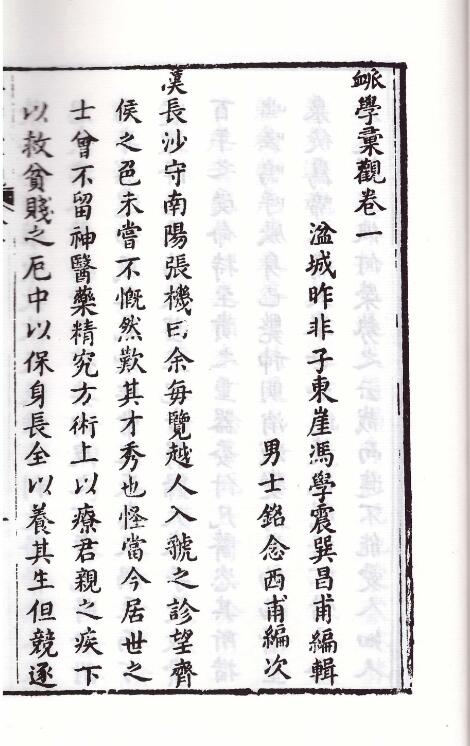 脈學彙觀卷一
湓城昨非子東崖馮學震巽昌甫編輯
男士銘念西甫編次
漢長沙守南陽張機曰余每覽越人入虢之診望齊
侯之色未嘗不慨然歎其才秀也怪當今居世之
士曾不留神醫藥精究方術上以療君親之疾下
以救貧賤之厄中以保身長全以養其生但競逐